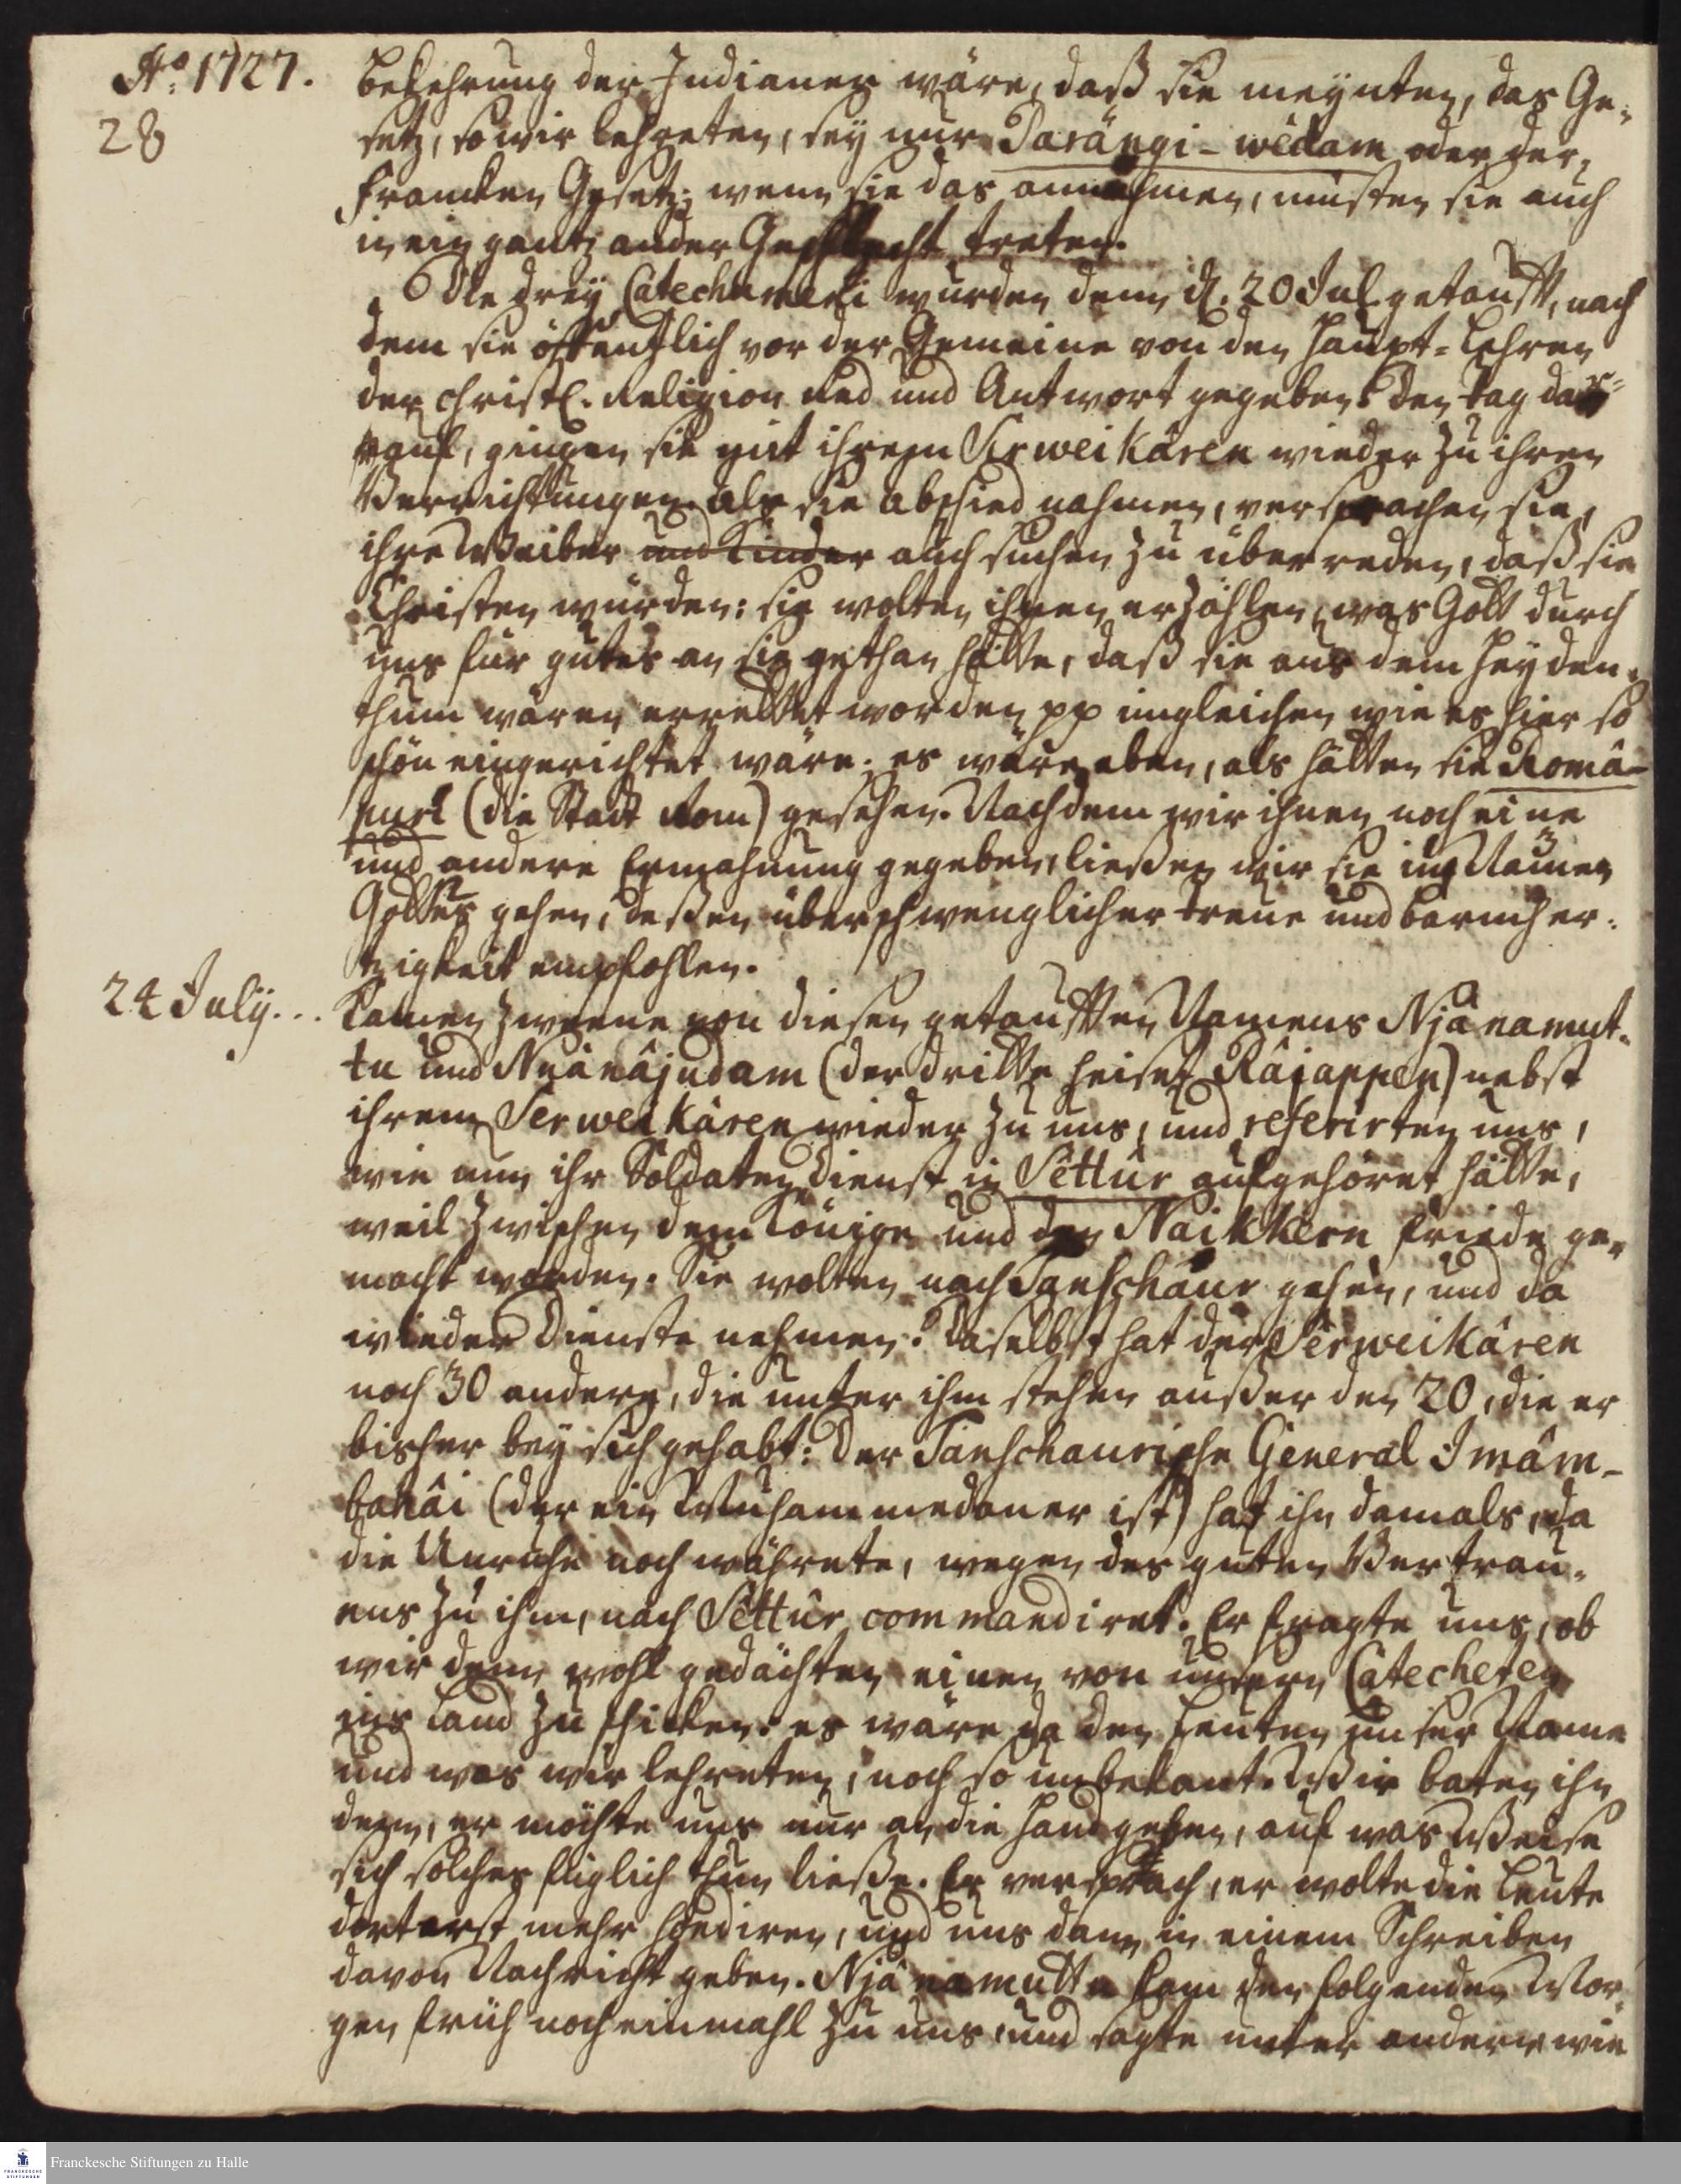 Aº. 1727.
28
bekehrung der Indianer wäre, daß sie meynten, das Ge-
setz, so wir lehreten, sey nur Parángi-wêdam oder der
Francken Gesetz; wenn sie das annehmen, müsten sie auch
in ein gantz ander Geschlecht treten.
Die drey Catechumeni wurden denn d. 20 Jul. getaufft, nach
dem sie öffentlich vor der Gemeine von den Haupt-Lehren
der christl. Religion Red und Antwort gegeben. Den tag dar-
rauf, gingen sie mit ihrem Serweikâren wieder zu ihren
Verrichtungen. Als sie abschied nahmen, versprachen sie,
ihre Weiber und Kinder auch suchen zu überreden, daß sie
Christen würden: sie wolten ihnen erzählen, was Gott durch
uns für gutes an sie gethan hätte, daß sie aus dem Heyden-
thum wären errettet worden pp ingleichen wie es hier so
schön eingerichtet wäre; es wäre eben, als hätten sie Româ-
puri (die Stadt Rom) gesehen. Nachdem wir ihnen noch eine
und andere Ermahnung gegeben, ließen wir sie im Namen
Gottes gehen, deßen überschwenglicher treue und barmher-
tzigkeit empfohlen.
24 July...
Kamen zweene von diesen getaufften Namens Njânamut-
tu und Njânâjudam (der dritte heiset Râjappen) nebst
ihrem Serweikâren wieder zu uns, und referirten uns,
wie nun ihr Soldaten dienst in Sêttûr aufgehöret hätte,
weil zwischen dem Könige und den Naikkern friede ge-
macht worden. Sie wolten nach Tanschaur gehen, und da
wieder Dienste nehmen. Daselbst hat der Serweikâren
noch 30 andere, die unter ihm stehen außer den 20, die er
bisher bey sich gehabt: Der Tanschaurische General Imâm-
bahâi (der ein Muhammedaner ist) hat ihn damals, da
die Unruhe noch währete, wegen des guten Vertrau-
ens zu ihm, nach Sêttûr commandiret. Er fragte uns, ob
wir denn wohl gedächten einen von unsern Catecheten
ins Land zu schicken: es wäre da den Leuten unser Name
und was wir lehreten, noch so unbekant. Wir baten ihn
denn, er möchte uns nur an die Hand geben, auf was Weise
sich solches füglich thun ließe. Er versprach, er wolte die Leute
dort erst mehr sondiren, und uns dann in einem Schreiben
davon Nachricht geben. Njânamuttu kam den folgenden Mor-
gen früh noch einmahl zu uns, und sagte unter andern wie
Franckesche Stiftungen zu Halle